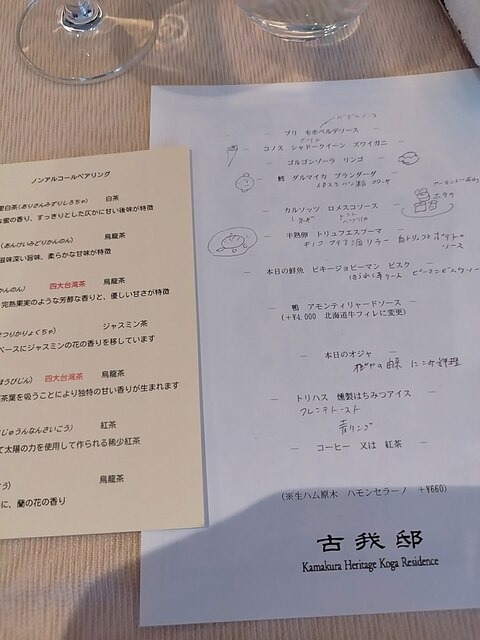 ノンアルコールペアリング
里白茶(ありさんみずりしろちゃ) 白茶
な蜜の香り、すっきりとした仄かに甘い後味が特徴
(あんけいみどりかんのん) 烏龍茶
滋味深い旨味、柔らかな甘味が特徴
かんのん) 四大台湾茶 烏龍茶
完熟果実のような芳醇な香りと、優しい甘さが特徴
ジャスミン茶
ベースにジャスミンの花の香りを移しています
ほうびじん) 四大台湾茶 烏龍茶
茶葉を吸うことにより独特の甘い香りが生まれます
じゅうんなんさいこう) 紅茶
て太陽の力を使用して作られる稀少紅茶
う) 烏龍茶
に、蘭の花の香り
バジルソース
― ブリ モホベルデソース ―
― コノス シャドークイーン ズワイガニ ―
― ゴルゴンゾーラ リンゴ ―
― 鱈 ダルマイカ ブランダーダ ―
― カルソッツ ロメスコソース ―
ホタテ
ネギ
― 半熟卵 トリュフエスプーマ ―
白トリュフとポテトの
ソース
― 本日の鮮魚 ピキージョピーマン ビスク ―
― 鴨 アモンティリャードソース ―
(+¥4,000 北海道牛フィレに変更)
― 本日のオジャ ―
― トリハス 燻製はちみつアイス ―
フレンチトースト
青リンゴ
― コーヒー 又は 紅茶 ―
(※生ハム原木 ハモンセラーノ +¥660)
古我邸
Kamakura Heritage Koga Residence